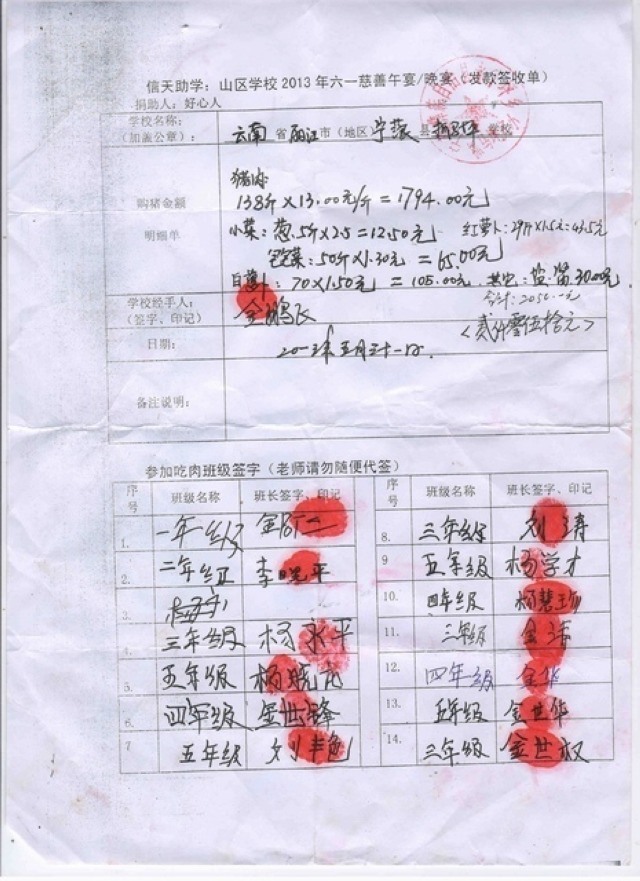 信天助学：山区学校2013年六一慈善午宴/晚宴（发款签收单）
捐助人：好心人
学校名称：
（加盖公章）：
云南省丽江市（地区）宁蒗县 学校
购猪金额
明细单
猪肉
138斤×13.00元/斤=1794.00元
小菜：葱.5斤×2.5=12.50元 红萝卜：29斤×1.5元=43.5元
菜：50斤×1.30元=65.00元
白萝卜：70×1.50元=105.00元 其它：30.00元
合计：2050.00元
〈贰仟零伍拾元〉
学校经手人：
（签字、印记）
金鹏飞
日期：
二〇一三年五月三十一日.
备注说明：
参加吃肉班级签字（老师请勿随便代签）
序号 班级名称 班长签字、印记 序号 班级名称 班长签字、印记
1. 一年级 8. 三年级 刘涛
2. 二年级 李晓平 9 五年级 杨学才
3. 10. 四年级
三年级 杨永平 11. 三年级
5. 五年级 杨晓龙 12. 四年级 金华
6. 四年级 金世锋 13. 五年级 金世华
7 五年级 14. 三年级 金世权